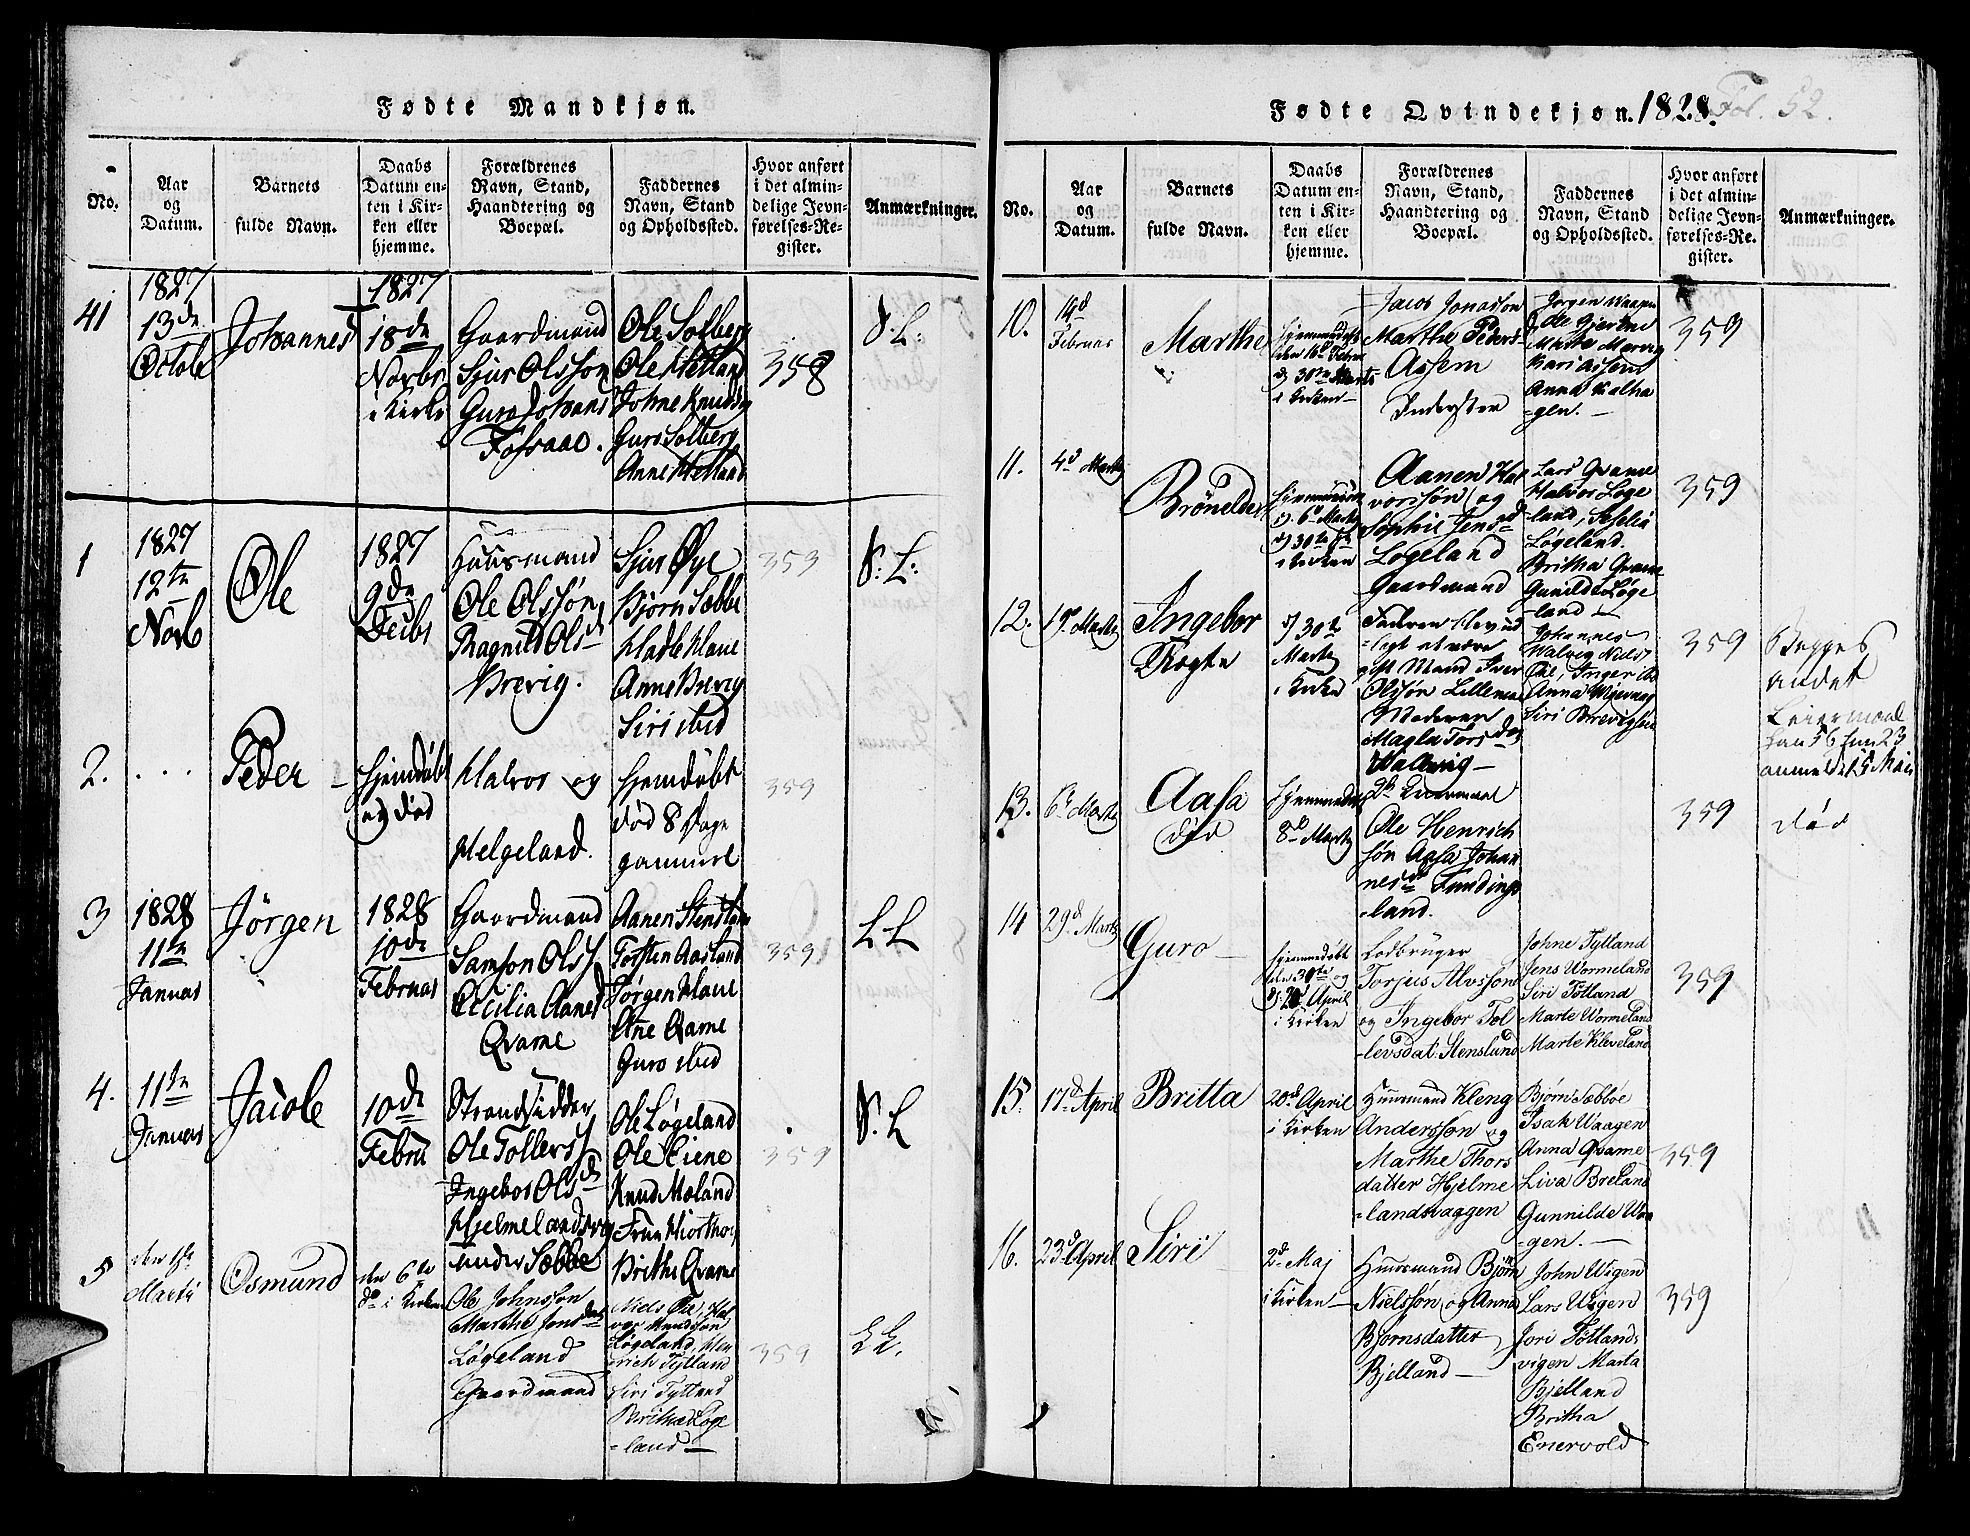 Fødte Mandkjøn.
No.
Aar
og
Datum.
Barnets
fulde Navn.
Daabs
Datum en-
ten i Kir-
ken eller
hjemme.
Forældrenes
Navn, Stand,
Haandtering og
Boepæl.
Faddernes
Navn, Stand
og Opholdssted.
Hvor anført
i det almin-
delige Jevn-
førelses-Re-
gister.
Anmærkninger.
41
1827
13de
Octobr
Johannes
1827
18de
Novbr
i Kirke
Gaardmand
Sjur Olsson
Guro Johans
Fossaae.
Ole Solberg
Ole Hetland
Johne Knuds
Guro Solberg
Anne Hetland
358
S. L:
1
1827
12te
Novb
Ole
1827
9de
Decbr
Huusmand
Ole Olssøn
Ragnild Olsd
Brevig.
Sjur Øye
Bjørn Sæbbe
Anne Brevig
Siri ibid
353
S: L:
2.
. . .
Peder
hjemdøbt
og død
Halvor og
Helgeland.
hjemdøbt
død 8 Dage
gammel
359
3
1828
11te
Januar
Jörgen
1828
10de
Februar
Gaardmand
Samson Ols
Cecilia Aanes
Qvame
Aanen Stensland
Torsten Aasland
Jørgen Klave
Ane Qvame
Guro ibid
359
L L
4.
11te
Januar
Jacob
10de
Febru
Strandsidder
Ole Tollers
Ingebor Olsd
Hjelmelandsvog
under Sæbbe
Ole Løgeland
Ole Eiene
Knud Mæland
Brithe Qvame
359
S. L
5
Martii
Osmund
den 6te
do i Kirken
Ole Johnsson
Marthe Jensdat
Løgeland
Gaardmand
Niels Øie, Hal
vor Knudsøn
Løgeland, Hen
rich Tytland
Siri Tytland
Britha Løge
-land-
359
L L.
Fødte Qvindekjøn. 1828.
Fol. 52.
No.
Aar
og
Datum.
Barnets
fulde Navn.
Daabs
Datum en-
ten i Kir-
ken eller
hjemme.
Forældrenes
Navn, Stand,
Haandtering og
Boepæl.
Faddernes
Navn, Stand
og Opholdssted.
Hvor anført
i det almin-
delige Jevn-
førelses-Re-
gister.
Anmærkninger.
10.
14d
Februar
Marthe
i Kirken-
Jacob Jonasson
Marthe Peders
Assem
Inderster
Jørgen Waagen
Ole Gjerten
Marte Mervig
Kari Assem
Anna Valha
-gen.-
359
11.
4d Marty
Brönelde
6d Marty
i Kirken
Aanen Hal
vorssøn og
Sophie Jensd
Løgeland
Gaardmand
Lars Qvame
Halvor Løge
land,
Løgeland.
Britha Qvame
Gunilde Løge
land-
359
12.
19d Marty
Ingebor
30te
Marty
i Kirke
Faderen blev ud
-lagt at være
gift Mand Iver
Olssøn Lilleman
Moderen
Magla Torsd
Walevig-
Johannes
Walvig Niels
Øie, Inger ibd
Siri Brevig
359
Begges
andet
Leiermaal
13.
6d Marty
Aasa
død
8d Marty
2det Leiermaal
Ole Henrich
søn Aasa Johan
nesd Fundings
-land.
359
død
14
29d Marty
Guro
hjemmedøbt
den 30te og
April
i Kirken
Lodbruger
Torjus Alvssøn
og Ingebor Tol
-levsdat: Stenslund
Johne Tytland
Jens Wormeland
Siri Tøtland
Marte Wormeland
Marte Kleveland
359
15.
17d April
Britta
20d April
i Kirken
Huusmand Kleng
Anderssøn og
Marthe Thors
datter Hjelme
-landsvaggen
Bjørn Sæbbøe
Isak Waagen
Anna Qvame
Liva Breland
Gunnilde Waa
-gen.-
359
16.
23d April
Siri
2d Maj
i Kirken-
Huusmand Bjørn
Nielssøn og Anna
Bjørnsdatter
Bjelland-
John Wigen
Lars Wigen
Jori Tøtlands
vigen Marta
Bjelland
Britha
Enervold
359